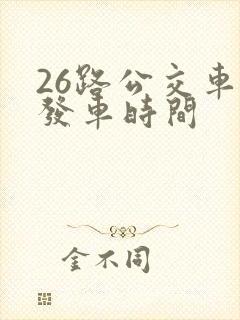 26路公交車
發車時間
金不同